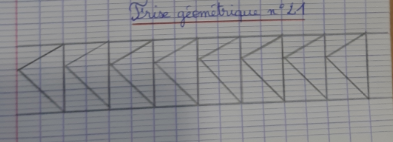 Frise géométrique n°21